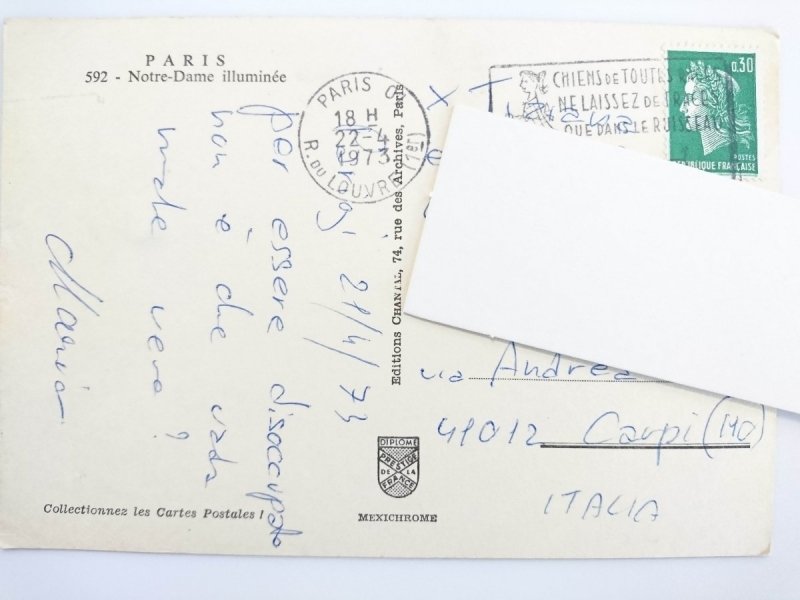 PARIS
592 - Notre-Dame illuminée
PARIS
18 H
22-4
1973
R. DU LOUVRE (1er)
CHIENS DE TOUTES
NE LAISSEZ DE TRACES
QUE DANS LE RUISSEAU
0.30
POSTES
REPUBLIQUE FRANÇAISE
Parigi 21/4/73
per essere disoccupato
non è che vada
male vero?
Editions CHANTAL, 74, rue des Archives, Paris
x Tiziana
via Andrea
41012 Carpi (MO)
ITALIA
DIPLOME
PRESTIGE
DE LA
FRANCE
MEXICHROME
Collectionnez les Cartes Postales !